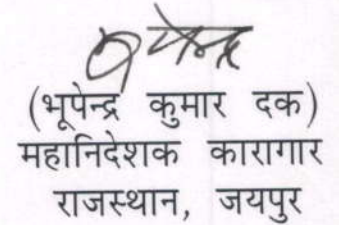 (भूपेन्द्र कुमार दक)
महानिदेशक कारागार
राजस्थान, जयपुर